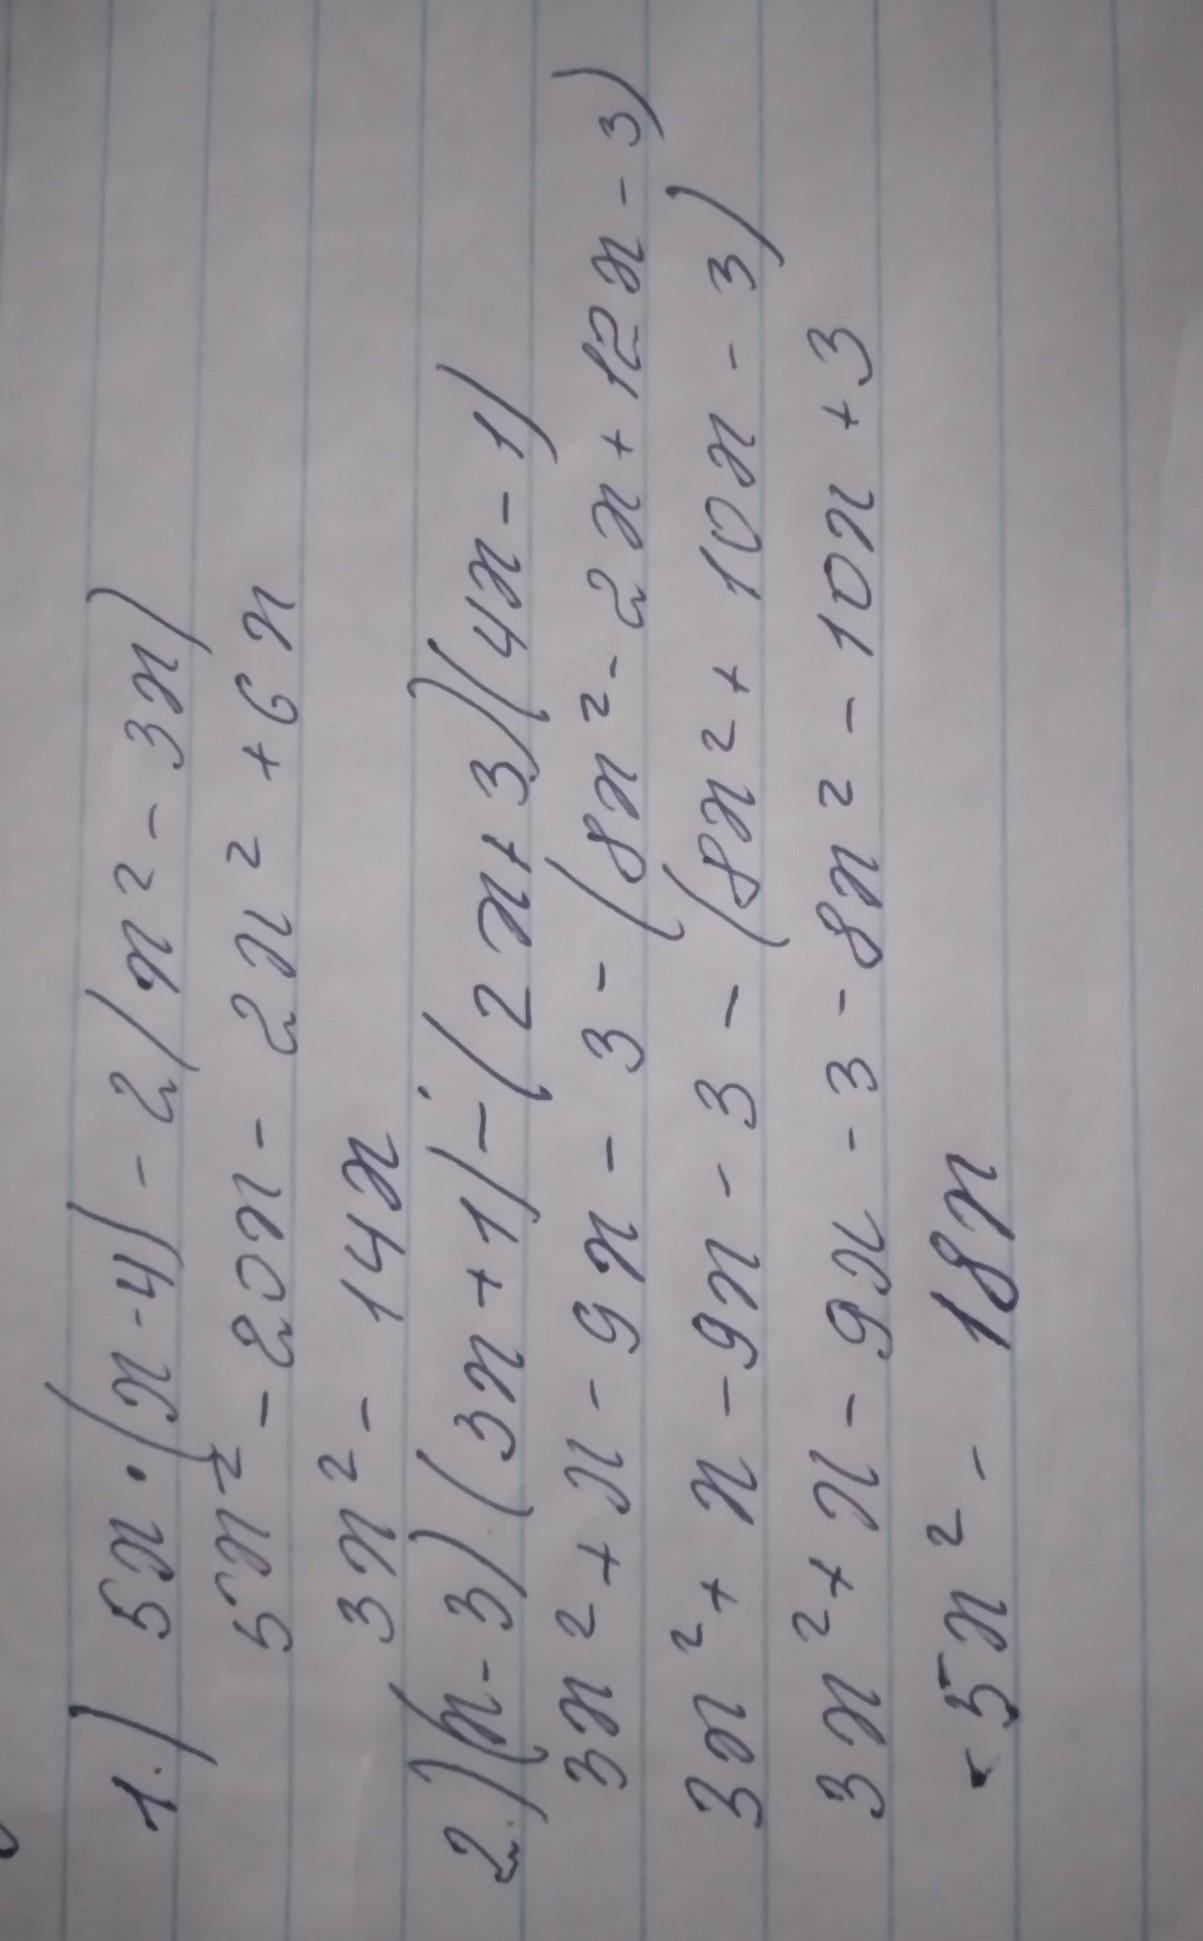 1.) 5x·(x-4) - 2(x² - 3x)
5x² - 20x - 2x² + 6x
3x² - 14x
2.) (x-3)(3x+1) - (2x+3)(4x-1)
3x² + x - 9x - 3 - (8x² - 2x + 12x - 3)
3x² + x - 9x - 3 - (8x² + 10x - 3)
3x² + x - 9x - 3 - 8x² - 10x + 3
-5x² - 18x